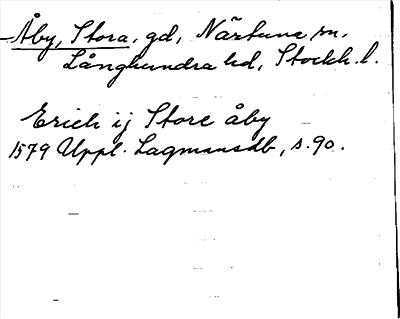 Åby, Stora, gd, Närtuna sn,
Långhundra hd, Stockh. l.
Erich ij Store åby
1579 Uppl. Lagmansdb, s. 90.